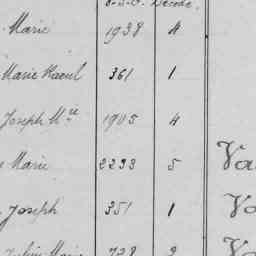 Décéde.
Marie 1938 4
Marie Raoul 361 1
Joseph Mie 1905 4
Marie 2233 5 Va
Joseph 351 1 Va
Julien Marie 728 2 Va